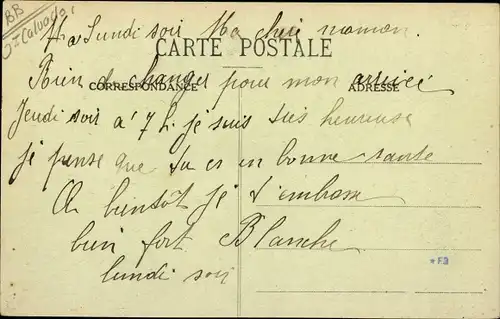 BB
Calvados
Lundi soir Ma chère maman
CARTE POSTALE
Rien de changer pour mon arrivée
CORRESPONDANCE
ADRESSE
Jeudi soir à 7 h. je suis très heureuse
je pense que tu es en bonne santé
A bientôt je t'embrasse
bien fort Blanche
lundi soir
*FD